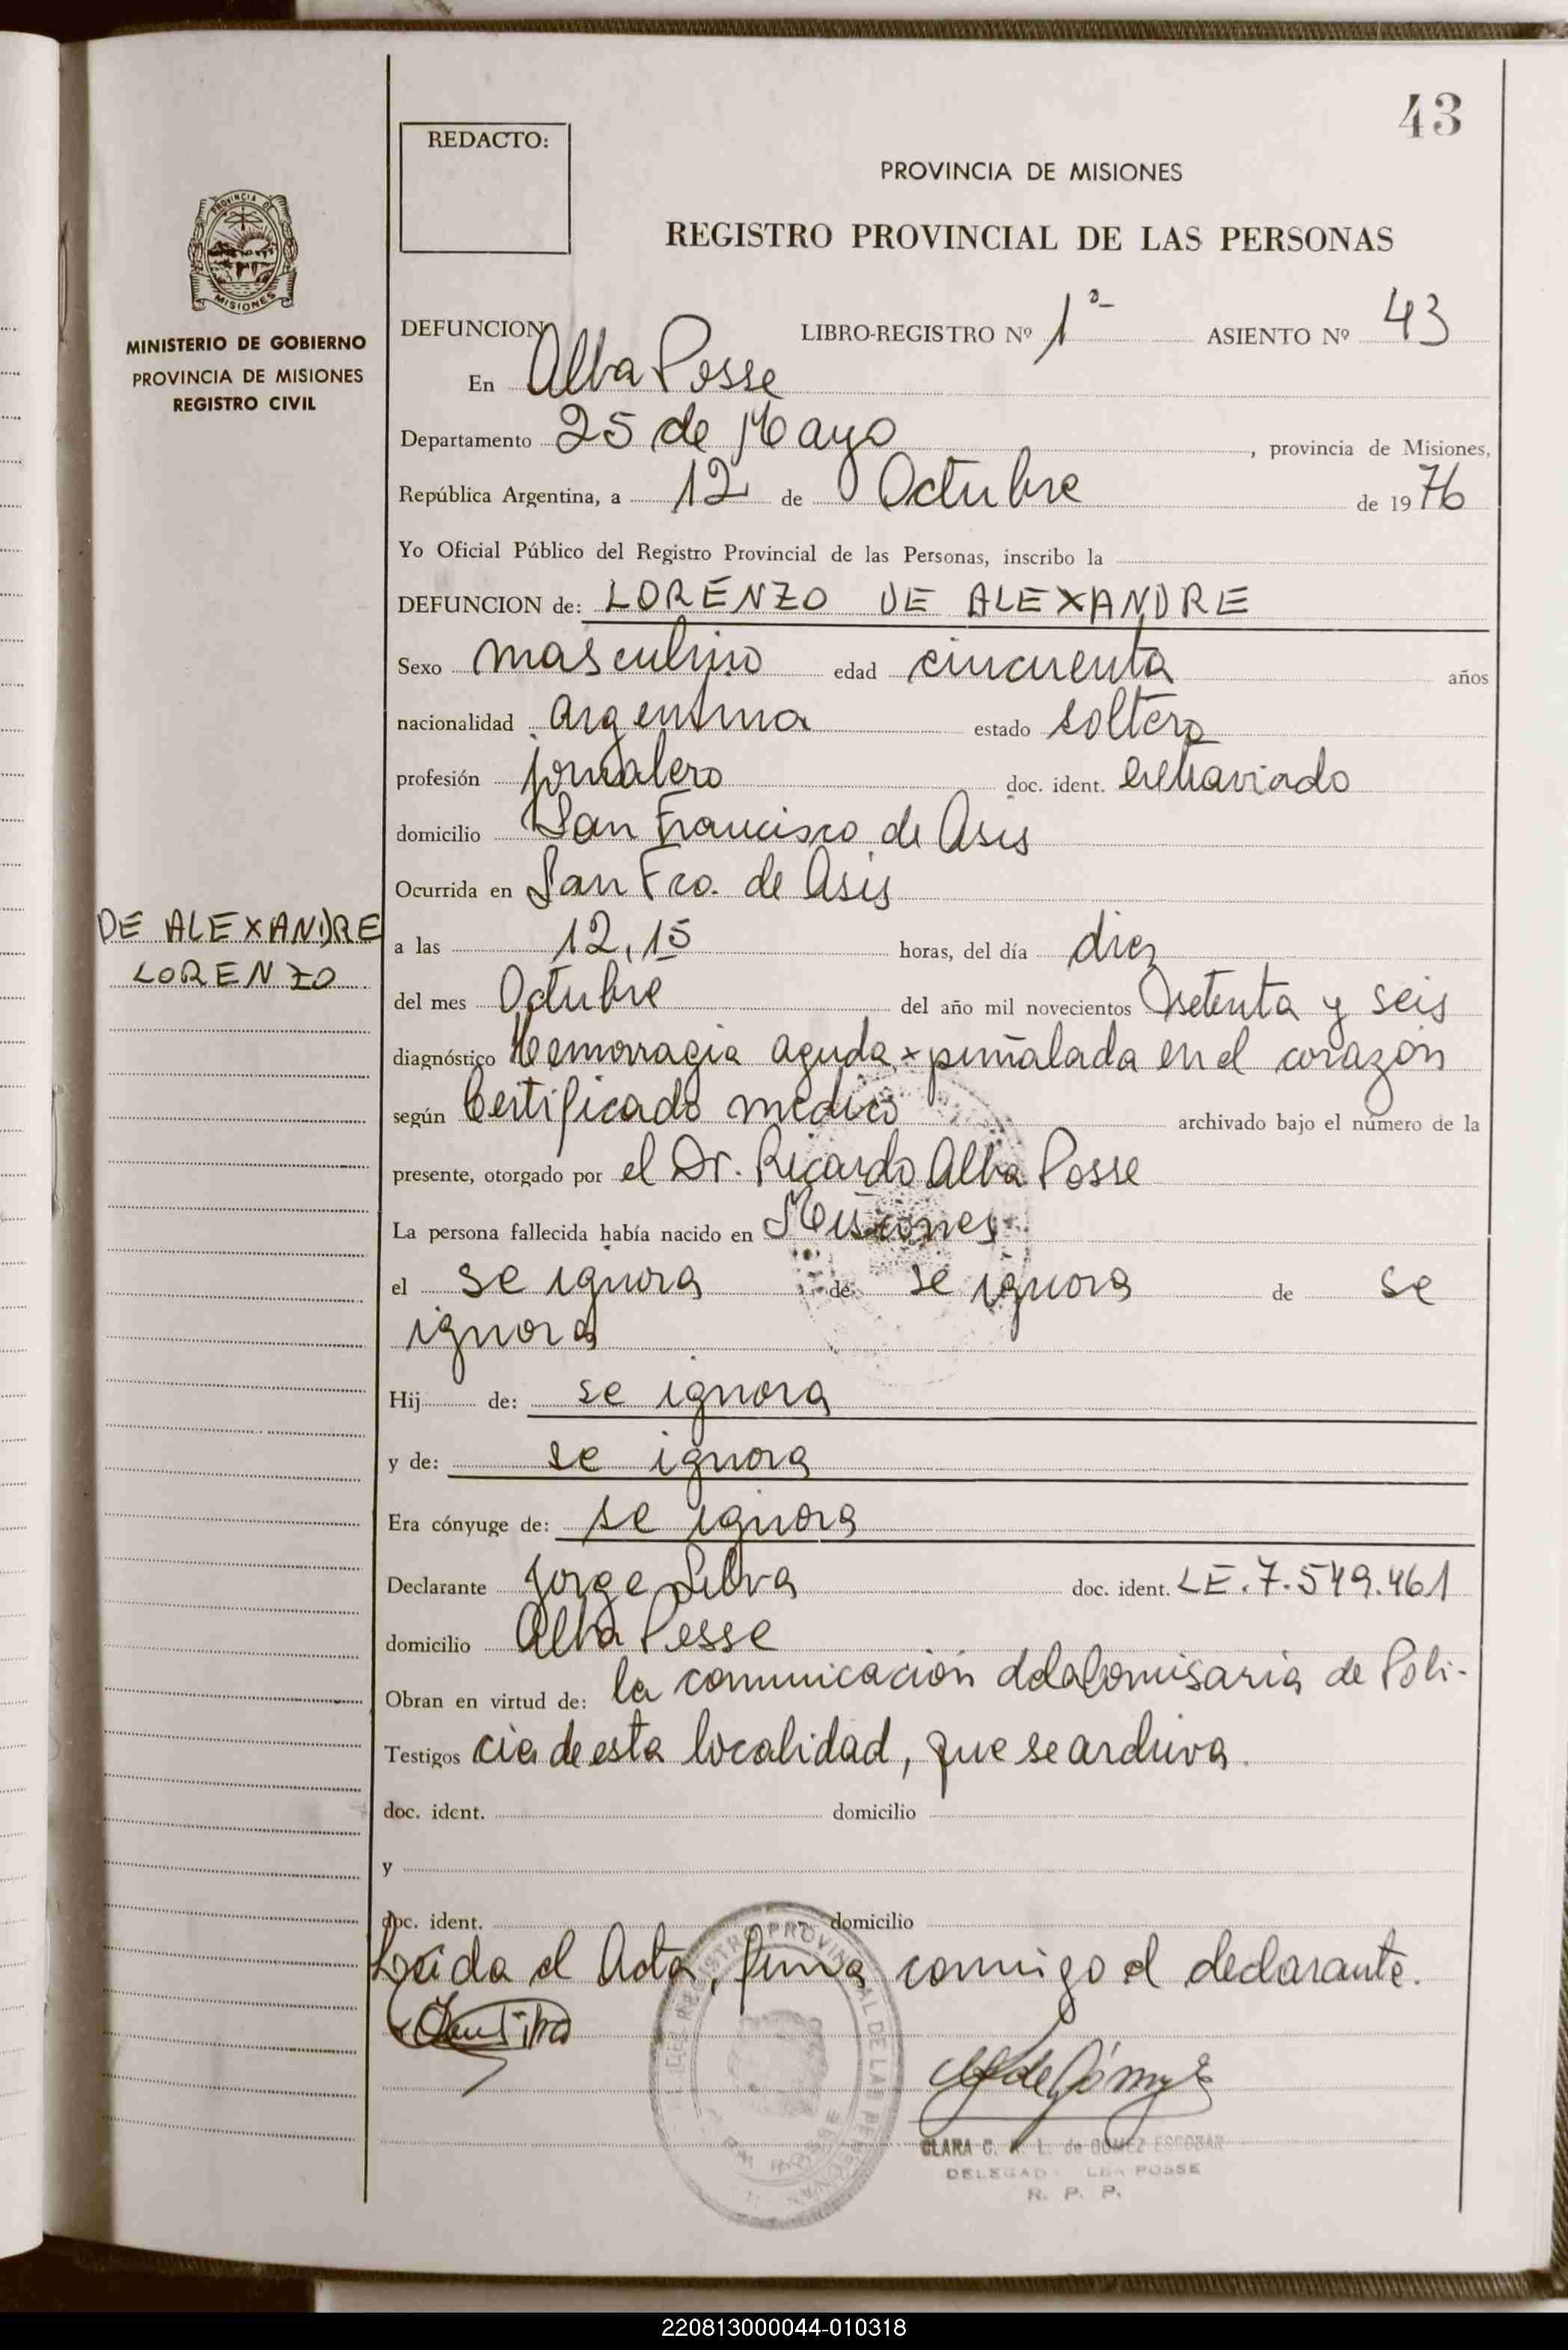 43
REDACTO:
PROVINCIA DE MISIONES
REGISTRO PROVINCIAL DE LAS PERSONAS
PROVINCIA DE
MISIONES
MINISTERIO DE GOBIERNO
PROVINCIA DE MISIONES
REGISTRO CIVIL
DEFUNCION LIBRO-REGISTRO Nº 1º ASIENTO Nº 43
En Alba Posse
Departamento 25 de Mayo, provincia de Misiones,
República Argentina, a 12 de Octubre de 1976
Yo Oficial Público del Registro Provincial de las Personas, inscribo la
DEFUNCION de: LORENZO DE ALEXANDRE
Sexo masculino edad cincuenta años
nacionalidad argentina estado soltero
profesión jornalero doc. ident. extraviado
domicilio San Francisco de Asis
Ocurrida en San Fco. de Asis
DE ALEXANDRE
LORENZO
a las 12,15 horas, del día diez
del mes Octubre del año mil novecientos setenta y seis
diagnóstico Hemorragia aguda x puñalada en el corazón
según Certificado médico archivado bajo el número de la
presente, otorgado por el Dr. Ricardo Alba Posse
La persona fallecida había nacido en Misiones
el se ignora de se ignora de se
ignora
Hij de: se ignora
y de: se ignora
Era cónyuge de: se ignora
Declarante Jorge Silva doc. ident. LE.7.549.461
domicilio Alba Posse
Obran en virtud de: la comunicación de la Comisaria de Poli-
Testigos cia de esta localidad, que se archiva.
doc. ident. domicilio
y
doc. ident. domicilio
Leida el Acta, firma conmigo el declarante.
REGISTRO PROVINCIAL DE LAS PERSONAS
CLARA C. de GOMEZ ESCOBAR
POSSE
R. P. P.
220813000044-010318